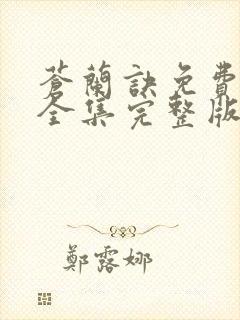 蒼蘭訣免費
全集完整版
鄭露娜